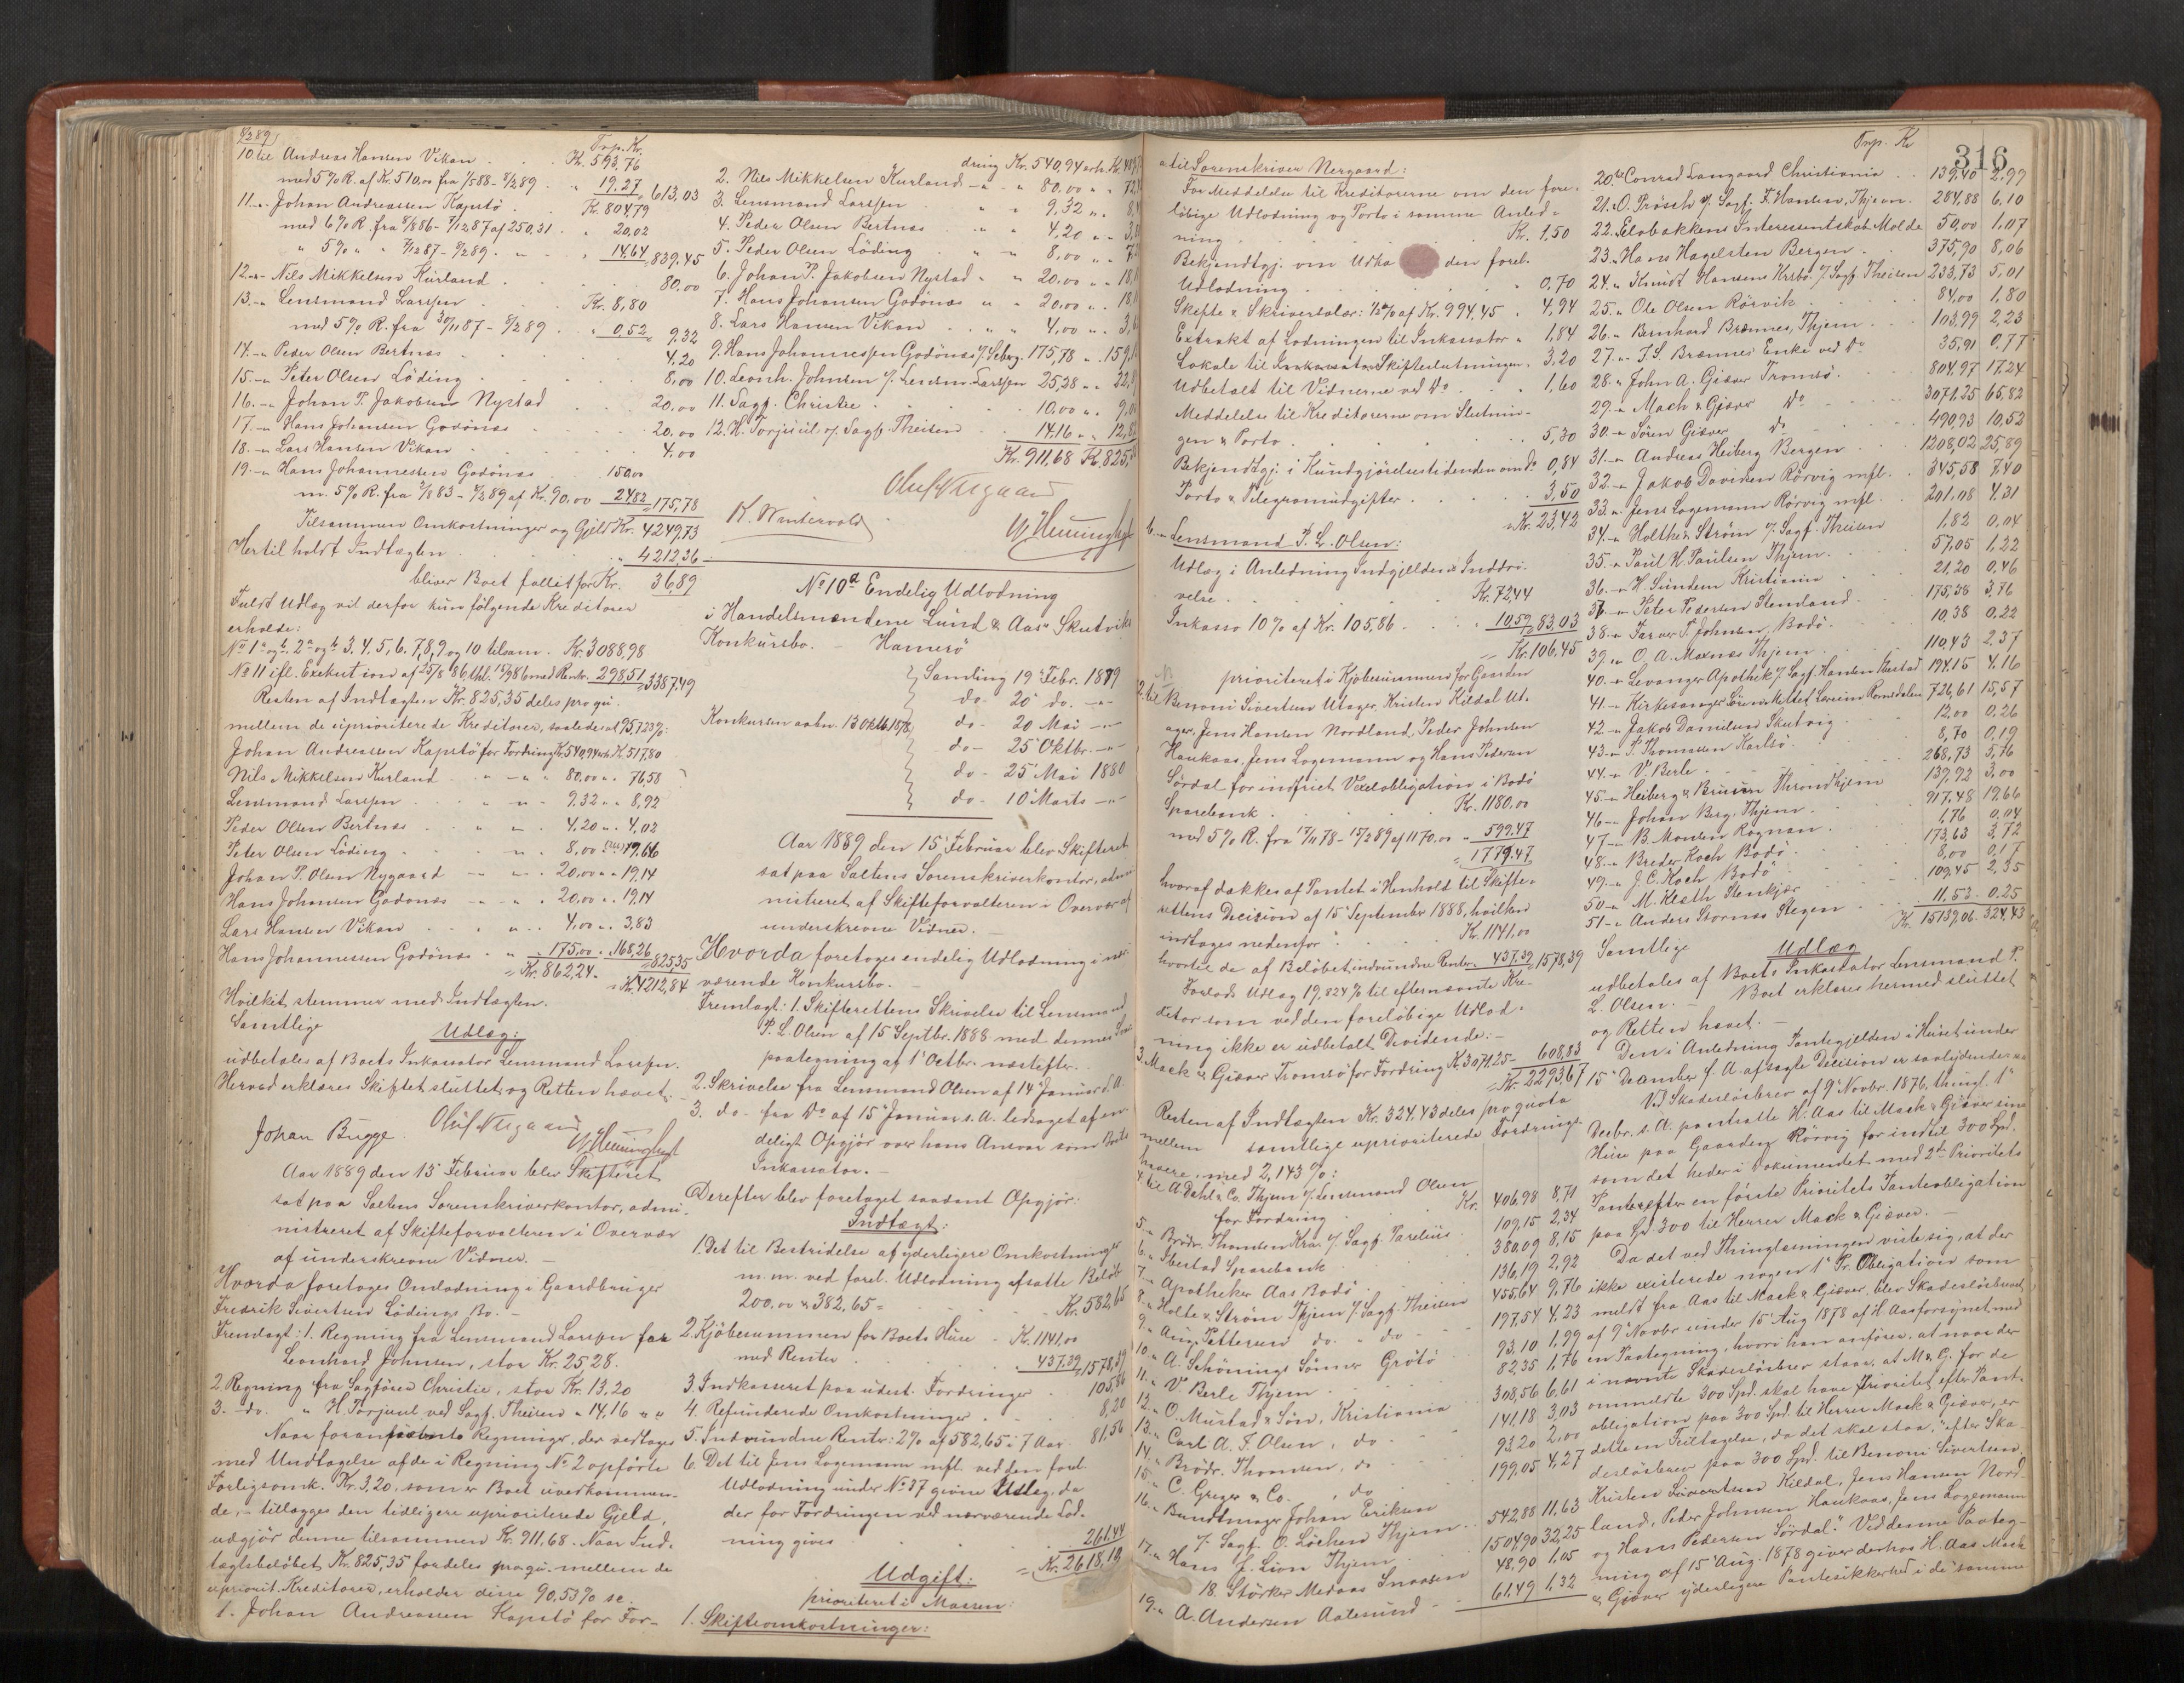 8/2 89
Trp. Kr.
10 til Andreas Hansen Vikan . . . Kr. 593,76
med 5% R. af Kr. 510,00 fra 1/5 88 - 8/2 89 . „ 19,27 = 613,03
11.-„ Johan Andreassen Kapstö . . Kr. 804,79
med 6% R. fra 8/8 86 - 7/12 87 af 250,31 . „ 20,02
„ 5% „ „ 7/12 87 - 8/2 89 . „ — „ 14,64 = 839,45
12.-„ Nils Mikkelsen Kurland . . . 80,00
13.-„ Lensmand Larssen . . Kr. 8,80
med 5% R. fra 30/11 87 - 8/2 89 . . „ 0,52 = 9,32
14.-„ Peder Olsen Bertnæs . . . 4,20
15.-„ Peter Olsen Löding . . . 8,00
16.-„ Johan P. Jakobsen Nystad . . . 20,00
17.-„ Hans Johansen Godönæs . . . 20,00
18.-„ Lars Hansen Vikan . . . 4,00
19.-„ Hans Johannessen Godönæs . 150,00
m. 5% R. fra 2/8 83 - 8/2 89 af Kr. 90,00 24,82 = 175,78
Tilsammen Omkostninger og Gjeld Kr. 4249,73
Hertil holdt Indtægten . . . „ 4212,36
bliver Boet fallit for Kr. 36,89
Fuldt Udlæg vil derfor kun følgende Kreditorer
erholde:
No 1a og b. 2a og b 3. 4. 5, 6. 7, 8, 9 og 10 tilsam. Kr. 3088,98
No 11 ifl. Exekution af 25/8 86, thl. 10/9 86 med Rentr. 298,51 = 3387,49
Resten af Indtægten Kr. 825,35 deles pro qu.
mellem de uprioriterede Kreditorer, saaledes at 95,723%:
Johan Andreassen Kapstö for Fordring Kr. 540,94 erh. Kr. 517,80
Nils Mikkelsen Kurland . „ — „ 80,00 „ . 76,58
Lensmand Larssen . . . „ . 9.32 „ „ 8,92
Peder Olsen Bertnæs . . . „ . 4.20 „ . 4,02
Peter Olsen Löding . . . „ . 8,00 „ 7,66
Johan P. Olsen Nygaard . — „ . 20,00 „ „ 19,14
Hans Johansen Godönæs — „ . 20,00 „ . 19,14
Lars Hansen Vikan . . „ . 4,00 „ . 3,83
Hans Johannessen Godönæs . „ 175,00 „ 168,26 = 825,35
= Kr. 862,24. = Kr. 4212,84
Hvilket stemmer med Indtægten.
Samtlige
Udlæg:
udbetales af Boets Inkassator Lensmand Larssen.
Herved erklæres Skiftet sluttet og Retten hævet.
Johan Bugge. Oluf Nergaard
Aar 1889 den 15 Februar blev Skifteret
sat paa Saltens Sorenskriverkontor, admi-
nistreret af Skifteforvalteren i Overvær
af underskrevne Vidner. —
Hvorda foretoges Omlodning i Gaardbruger
Fredrik Sivertsen Lödings Bo. —
Fremlagt: 1. Regning fra Lensmand Larssen for
Leonhard Johnsen, stor Kr. 25,28.
2. Regning fra Sagförer Christie, stor Kr. 13,20
3. do. „ H. Torjuul ved Sagf. Theisen „ 14,16 „ „
Naar foranførte Regninger, der vedtages
med Undtagelse af de i Regning No 2 opførte
Forligsomk. Kr. 3,20, som er Boet uvedkommen-
de, — tillægges den tidligere uprioriterede Gjeld,
udgjör denne tilsammen Kr. 911,68. Naar Ind-
tægtsbelöbet Kr. 825,35 fordeles pro qu. mellem de
upriorit. Kreditorer, erholder disse 90,53% se.
1. Johan Andreassen Kapstö for For-
dring Kr. 540,94 erh. Kr. 489,7
2. Nils Mikkelsen Kurland — „ „ 80.00 „ „ 72,4
3. Lensmand Larssen . „ „ 9,32 „ . 8,4
4. Peder Olsen Bertnæs . . „ „ 4,20 „ „ 3,8
5. Peder Olsen Löding . „ „ 8,00 „ „ 7,2
6. Johan P. Jakobsen Nystad „ „ 20,00 „ „ 18,1
7. Hans Johansen Godönæs „ „ 20,00 „ . 18,1
8. Lars Hansen Vikan . . „ „ 4,00 „ . 3,6
9. Hans Johannessen Godönæs v/ Seberg. 175,78 „ . 159,1
10. Leonh. Johnsen v/ Lensm. Larssen 25,28 „ . 22,8
11. Sagf. Christie . . . 10,00 „ . 9,0
12. H. Torjuul v/ Sagf. Theisen . 14,16 „ . 12,82
Kr. 911,68 Kr. 825,3
Oluf Nergaard
K. Wintervold
No 10d Endelig Udlodning
i Handelsmændene Lund & Aas' Skutviks
Konkursbo. — Hamerö
Konkursen aabn. 13 Oktbr. 1878
Samling 19 Febr. 1879
do. 20 do. —„—
do. 20 Mai —„—
do. 25 Oktbr. —„—
do. 25 Mai 1880
do. 10 Marts —„—
Aar 1889 den 15 Februar blev Skifteret
sat paa Saltens Sorenskriverkontor, admi-
nistreret af Skifteforvalteren i Overvær af
underskrevne Vidner. —
Hvorda foretoges endelig Udlodning i nær-
værende Konkursbo. —
Fremlagt: 1. Skifterettens Skrivelse til Lensmand
P. L. Olsen af 15 Septbr. 1888 med dennes
paategning af 1 Octbr. næstefter. —
2. Skrivelse fra Lensmand Olsen af 14 Januar d. A.
3. do — fra Do af 15 Januar s. A. ledsaget af en-
deligt Opgjör over hans Ansvar som Boets
Inkassator. —
Derefter blev foretaget saadant Opgjör:
Indtægt:
1. Det til Bestridelse af yderligere Omkostninger
m. m. ved forel. Udlodning afsatte Belöb
200,00 & 382,65 = . . . Kr. 582,65
2. Kjöbesummen for Boets Huse . Kr. 1141,00
med Renter . . . „ 437.39 = 1578,39
3. Indkasseret paa udest. Fordringer . 105,86
4. Refunderede Omkostninger . . 8,20
5. Indvundne Renter: 2% af 582,65 i 7 Aar 81,56
6. Det til Jens Logemann mfl. ved den forel.
Udlodning under No 37 givne Udlæg, da
der for Fordringen ved nærværende Lod-
ning gives . . . 261.44
= Kr. 2618,19
Udgift:
prioriteret i Massen:
1. Skifteomkostninger:
316
Trp. Kr
a til Sorenskriver Nergaard:
For Meddelelse til Kreditorerne om den fore-
löbige Udlodning og Porto i samme Anled-
ning . . . Kr. 1,50
Bekjendtgj. om Udlo den forel.
Udlodning . . . „ 0,70
Skifte & Skriversalær: 1/2% af Kr. 994,45 „ 4,94
Extrakt af Lodningen til Inkassator „ 1,84
Lokale til Skifteslutningen . 3,20
Udbetalt til Vidnerne ved Do . . „ 1,60
Meddelelse til Kreditorerne om Slutnin-
gen & Porto . . . „ 5,30
Bekjendtgj. i Kundgjörelsestidenden om do 0,84
Porto & Telegramudgifter . . . 3,50
= Kr. 23,42
b. - Lensmand P. L. Olsen:
Udlæg i Anledning Indgjeldens Inddri-
velse . . . Kr. 72,44
Inkasso 10% af Kr. 105,86 . . . 10,59 = 83,03
= Kr. 106.45
prioriteret i Kjöbesummen for Gaarden
2. til Benoni Sivertsen Utager, Kristen Kildal Ut-
ager, Jens Hansen Nordland, Peder Johnsen
Haukaas, Jens Logemann og Hans Pedersen
Sördal for indfriet Vexelobligation i Bodö
Sparebank . . . Kr. 1180,00
med 5% R. fra 17/11 78 - 15/2 89 af 1170,00 „ 599,47
= 1779.47
hvoraf dækkes af Pantet i Henhold til Skifte-
rettens Decision af 15 September 1888, hvilken
indtages nedenfor . . Kr. 1141,00
hvortil de af Belöbet indvundne Renter . 437.39 = 1578,39
Forlods Udlæg 19,824% til efternævnte Kre-
ditor som ved den foreløbige Udlod-
ning ikke er udbetalt Dividende: —
3. Mack & Giæver Tromsö for Fordring Kr. 3071,25 - 608,83
= Kr. 2293,67
Resten af Indtægten Kr. 324.43 deles pro quota
mellem samtlige uprioriterede Fordrings-
havere med 2,143%:
4. til A. Dahl & Co. Thjem v/ Lensmand Olsen
for Fordring . . Kr. 406,98 8,71
5. „ Brödr. Thomsen Kra. v/ Sagf. Parelius . 109,15 2,34
6. „ Ibestad Sparebank . . 380,09 8,15
7. „ Apotheker Aas Bodö . . 136,19 2,92
8. „ Holte & Strøm Thjem v/ Sagf. Theisen 455,64 9,76
9. „ Aug. Pettersen do. „ do — 197,54 4,23
10 „ A. Schönings Sönner Grötö . 93,10 1,99
11. „ V. Berle Thjem . . 82,35 1,76
12. „ O. Mustad & Sön, Kristiania . . 308,56 6,61
13. „ Carl A. F. Olsen, do. . . 141,18 3,03
14. „ Brödr. Thomsen, do — . 93,20 2,00
15. „ C. Greger & Co. , do — 199,05 4,27
16. „ Bundtmager Johan Eriksen
v/ Sagf. O. Löchen Thjem . . 542,88 11,63
17. „ Hans J. Lion Thjem . . 1504,90 32,25
18. Störker Medaas Snaasen 48,90 1,05
19. „ A. Andersen Aalesund — — 61,49 1,32
20. til Conrad Langaard Christiania . . 139,40 2,99
21. „ O. Prösch v/ Sagf. F. Hansen, Thjem. . 284,88 6,10
22. „ Selvbakkens Interessentskab Molde 50,00 1,07
23. „ Hans Hagelsten Bergen . . 375,90 8,06
24. „ Knudt Hansens Krsbo. v/ Sagf. Theisen 233,73 5,01
25. „ Ole Olsen Rörvik . . . 84,00 1,80
26. „ Bernhard Brænnes, Thjem . . 103,99 2,23
27. „ J. S. Brænnes Enke ved Do . 35,91 0,77
28. „ John A. Giæver Tromsö. . 804,97 17,24
29. „ Mack & Giæver Do . . 3071,25 65,82
30. „ Sören Giæver do . . 490,93 10,52
31. „ Andreas Heiberg Bergen . . 1208,02 25,89
32. „ Jakob Davidsen Rörvig mfl . . 345,58 7,40
33. „ Jens Logemann Rörvig mfl . . 201,08 4,31
34. „ Holthe & Ström v/ Sagf. Theisen 1,82 0,04
35. „ Paul H. Paulsen Thjem. . . 57,05 1,22
36. „ H. Sundem Kristiania . . 21,20 0,46
37. „ Peter Pedersen Stemland . . 175,38 3,76
38. „ Farver P. Johnsen, Bodö. . . 10,38 0,22
39. „ O. A. Moxnæs Thjem . . 110,43 2,37
40. „ Levanger Apothek v/ Sagf. Hansen Ibestad 194,15 4.16
41. „ Kirkesanger 726,61 15,57
42. „ Jakob Danielsen Skutvig . . 12,00 0,26
43. „ P. Thomassen Karlsö . . 8,70 0,19
44. „ V. Berle . . . 268,73 5,76
45. „ Heiberg & Bruun Throndhjem 139,92 3,00
46. „ Johan Berg, Thjem . . 917,48 19,66
47. „ B. Monsen Rognan . . 1,76 0,04
48. „ Breder Koch Bodö . . 173,63 3,72
49. „ J. C. Koch Bodö . . 8,00 0,17
50. „ M. Kleth Stenkjær . . 109,45 2,35
51. „ Anders Stornæs Stegen . . 11.53 . 0.25
Kr. 15139,06. 324,43
Samtlige Udlæg
udbetales af Boets Inkassator Lensmand P.
L. Olsen. — Boet erklæres hermed sluttet
og Retten hævet. —
Den i Anledning Pantegjelden i Huset under
15 December f. A. afsagte Decision er saalydende:
Ved Skadeslösbrev af 9 Novbr. 1876, thingl. 1
Decbr. s. A. pantsatte H. Aas til Mack & Giæver sine
Huse paa Gaarden Rörvig for indtil 300 Spd.
som det heder i Dokumentet med 2den Prioritets
Panteret efter en förste Prioritets Panteobligation
paa Spd 300 til Herrer Mack & Giæver. —
Da det ved Thinglæsningen viste sig, at der
ikke existerede nogen 1 Pr. Obligation som
meldt fra Aas til Mack & Giæver, blev Skadeslösbrevet
af 9 Novbr under 15 Aug 1878 af H. Aas forsynet med
en Paategning, hvori han anförer, at naar der
i nævnte Skadeslösbrev staar, at M. & G. for de
ommeldte 300 Spd. skal have Prioritet efter Pant-
obligation paa 300 Spd. til Herrer Mack & Giæver, er
dette en Feiltagelse, da det skal staa, „efter Ska-
deslösbrev paa 300 Spd. til Benoni Sivertsen,
Kristen Sivertsen Kildal, Jens Hansen Nord-
land, Peder Johnsen Haukaas, Jens Logemann
og Hans Pedersen Sördal." Ved denne Paateg-
ning af 15 Aug. 1878 giver derhos H. Aas Mack
& Giæver yderligere Pantesikkerhed i de samme